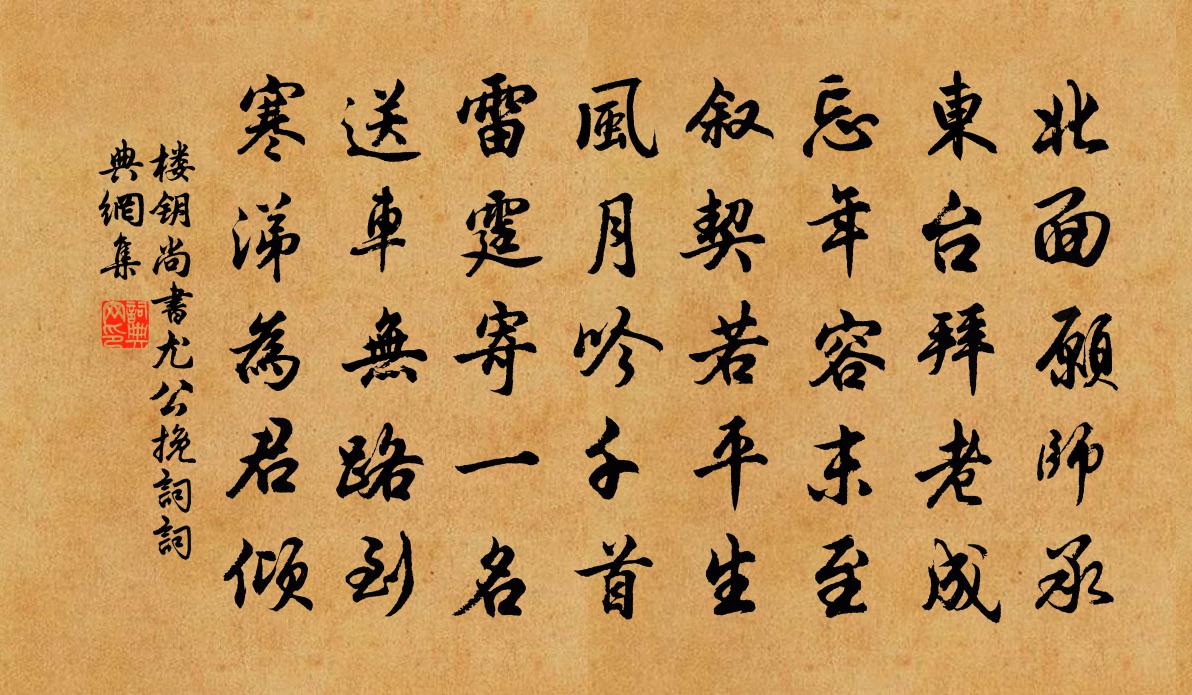 北面願師承
東台拜老成
忘年容末至
叙契若平生
風月吟千首
雷霆寄一名
送車無路到
寒涕為君傾
楼钥尚書尤公挽詞詞
典網集
詞典
网印